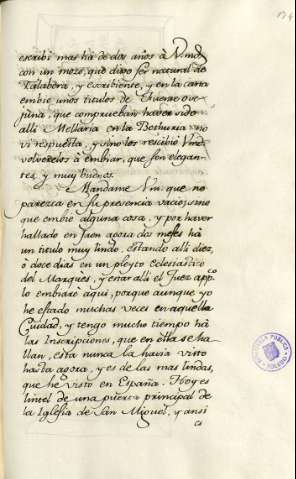 escribi mas ha de dos años à Vmd
con un mozo, que dixo ser natural de
Talabera, y escribiente, y en la carta
embiè unos titulos de Fuente ove-
juna, que comprueban haver sido
alli Mellaria en la Bethuria no
vi respuesta, y sino los recibio Vmd
volverelos à embiar, que son elegan-
tes, y muy buenos.
Mandame Vm. que no
parezca en su presencia vacio, sino
que embie alguna cosa, y por haver
hallado en Jaen agora dos meses hà
un titulo muy lindo, estando alli diez,
ò doce dias en un pleyto eclesiastico
del Marquès, y estar alli el Juez app.co
lo embiarè aqui, porque aunque yo
he estado muchas veces en aquella
Ciudad, y tengo mucho tiempo hà
las Inscripciones, que en ella se ha-
llan, esta nunca la havia visto
hasta agora, y es de las mas lindas,
que he visto en España. Hoy es
lintel de una puerta principal de
la Iglesia de San Miguel, y ansi
es